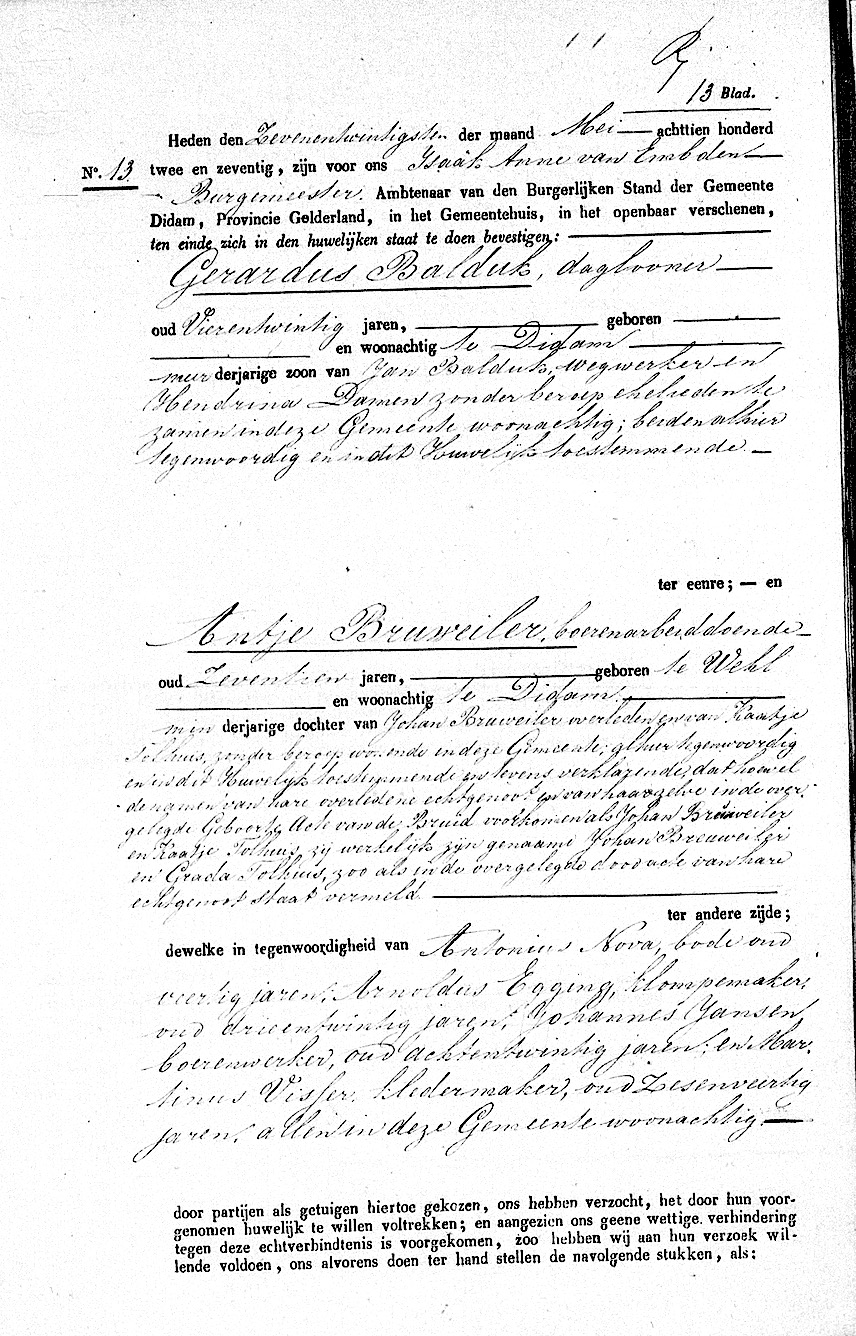 13 Blad.
Heden den Zevenentwintigsten der maand Mei achttien honderd
No. 13 twee en zeventig, zijn voor ons Isaäk Anne van Embden
Burgemeester. Ambtenaar van den Burgerlijken Stand der Gemeente
Didam, Provincie Gelderland, in het Gemeentehuis, in het openbaar verschenen,
ten einde zich in den huwelijken staat te doen bevestigen:
Gerardus Balduk, daglooner
oud Vierentwintig jaren, geboren
en woonachtig te Didam
meerderjarige zoon van Jan Balduk, wegwerker en
Hendrina Damen zonder beroep ehelieden te
zamen in deze Gemeente woonachtig; beiden alhier
tegenwoordig en in dit Huwelijk toestemmende.
ter eenre; — en
Antje Bruweiler, boerenarbeid doende
oud Zeventien jaren, geboren te Wehl
en woonachtig te Didam.
minderjarige dochter van Johan Bruweiler overleden en van Kaatje
Tolhuis, zonder beroep wonende in deze Gemeente; alhier tegenwoordig
en in dit Huwelijk toestemmende en tevens verklarende, dat hoewel
de namen van hare overledene echtgenoot en van haarzelve in de over-
gelegde Geboorte Acte van de Bruid voorkomen als Johan Bruweiler
en Kaatje Tolhuis, zij werkelijk zijn genaamd Johan Breuweiler
en Grada Tolhuis, zoo als in de overgelegde doodacte van hare
echtgenoot staat vermeld.
ter andere zijde;
dewelke in tegenwoordigheid van Antonius Nova, bode oud
veertig jaren, Arnoldus Egging, klompemaker,
oud drieentwintig jaren, Johannes Jansen,
boerenwerker, oud achtentwintig jaren; en Mar-
tinus Visser, kledermaker, oud Zesenveertig
jaren, allen in deze Gemeente woonachtig.
door partijen als getuigen hiertoe gekozen, ons hebben verzocht, het door hun voor-
genomen huwelijk te willen voltrekken; en aangezien ons geene wettige verhindering
tegen deze echtverbindtenis is voorgekomen, zoo hebben wij aan hun verzoek wil-
lende voldoen, ons alvorens doen ter hand stellen de navolgende stukken, als: